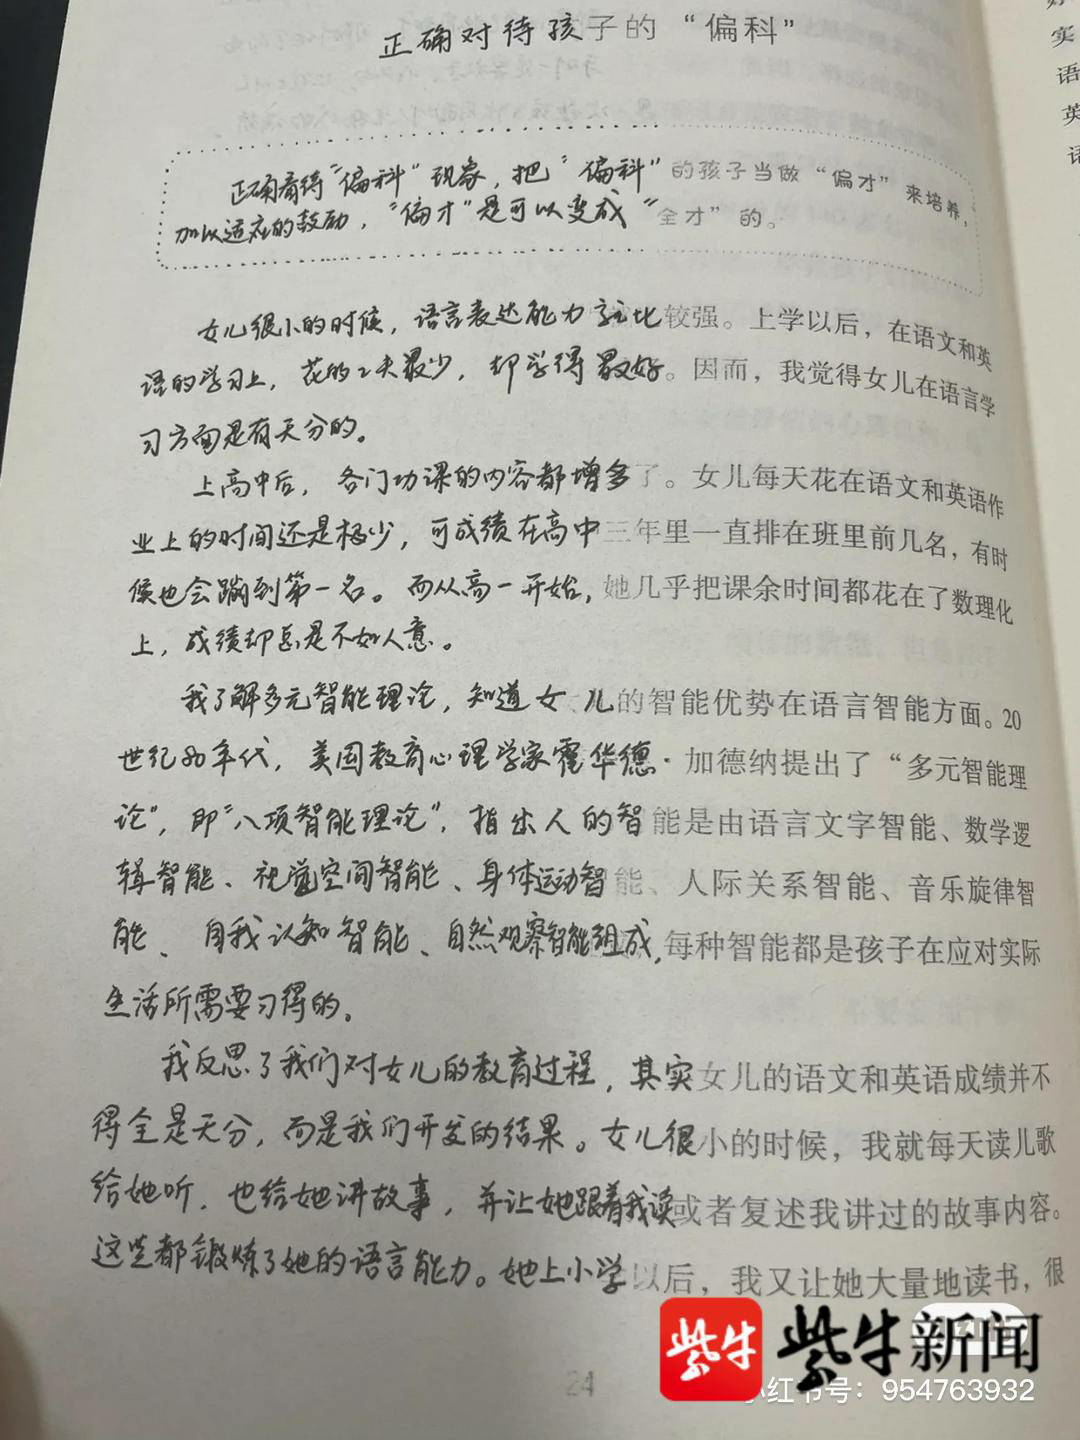 正确对待孩子的“偏科”
正确看待“偏科”现象，把“偏科”的孩子当做“偏才”来培养，
加以适应的鼓励，“偏才”是可以变成“全才”的。
女儿很小的时候，语言表达能力就比较强。上学以后，在语文和英
语的学习上，花的工夫最少，却学得最好。因而，我觉得女儿在语言学
习方面是有天分的。
上高中后，各门功课的内容都增多了。女儿每天花在语文和英语作
业上的时间还是极少，可成绩在高中三年里一直排在班里前几名，有时
候也会蹦到第一名。而从高一开始，她几乎把课余时间都花在了数理化
上，成绩却总是不如人意。
我了解多元智能理论，知道女儿的智能优势在语言智能方面。20
世纪80年代，美国教育心理学家霍华德·加德纳提出了“多元智能理
论”，即“八项智能理论”，指出人的智能是由语言文字智能、数学逻
辑智能、视觉空间智能、身体运动智能、人际关系智能、音乐旋律智
能、自我认知智能、自然观察智能组成，每种智能都是孩子在应对实际
生活所需要习得的。
我反思了我们对女儿的教育过程，其实女儿的语文和英语成绩并不
得全是天分，而是我们开发的结果。女儿很小的时候，我就每天读儿歌
给她听，也给她讲故事，并让她跟着我读或者复述我讲过的故事内容。
这些都锻炼了她的语言能力。她上小学以后，我又让她大量地读书，很
24
紫牛 紫牛新闻
小红书号：954763932
实
语
英